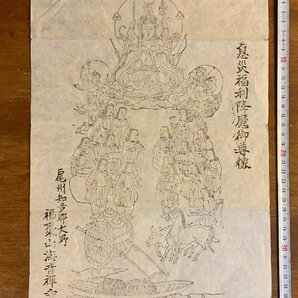 息災福利降魔御尊像
尾州知多郡大野
福聚山海音禅寺